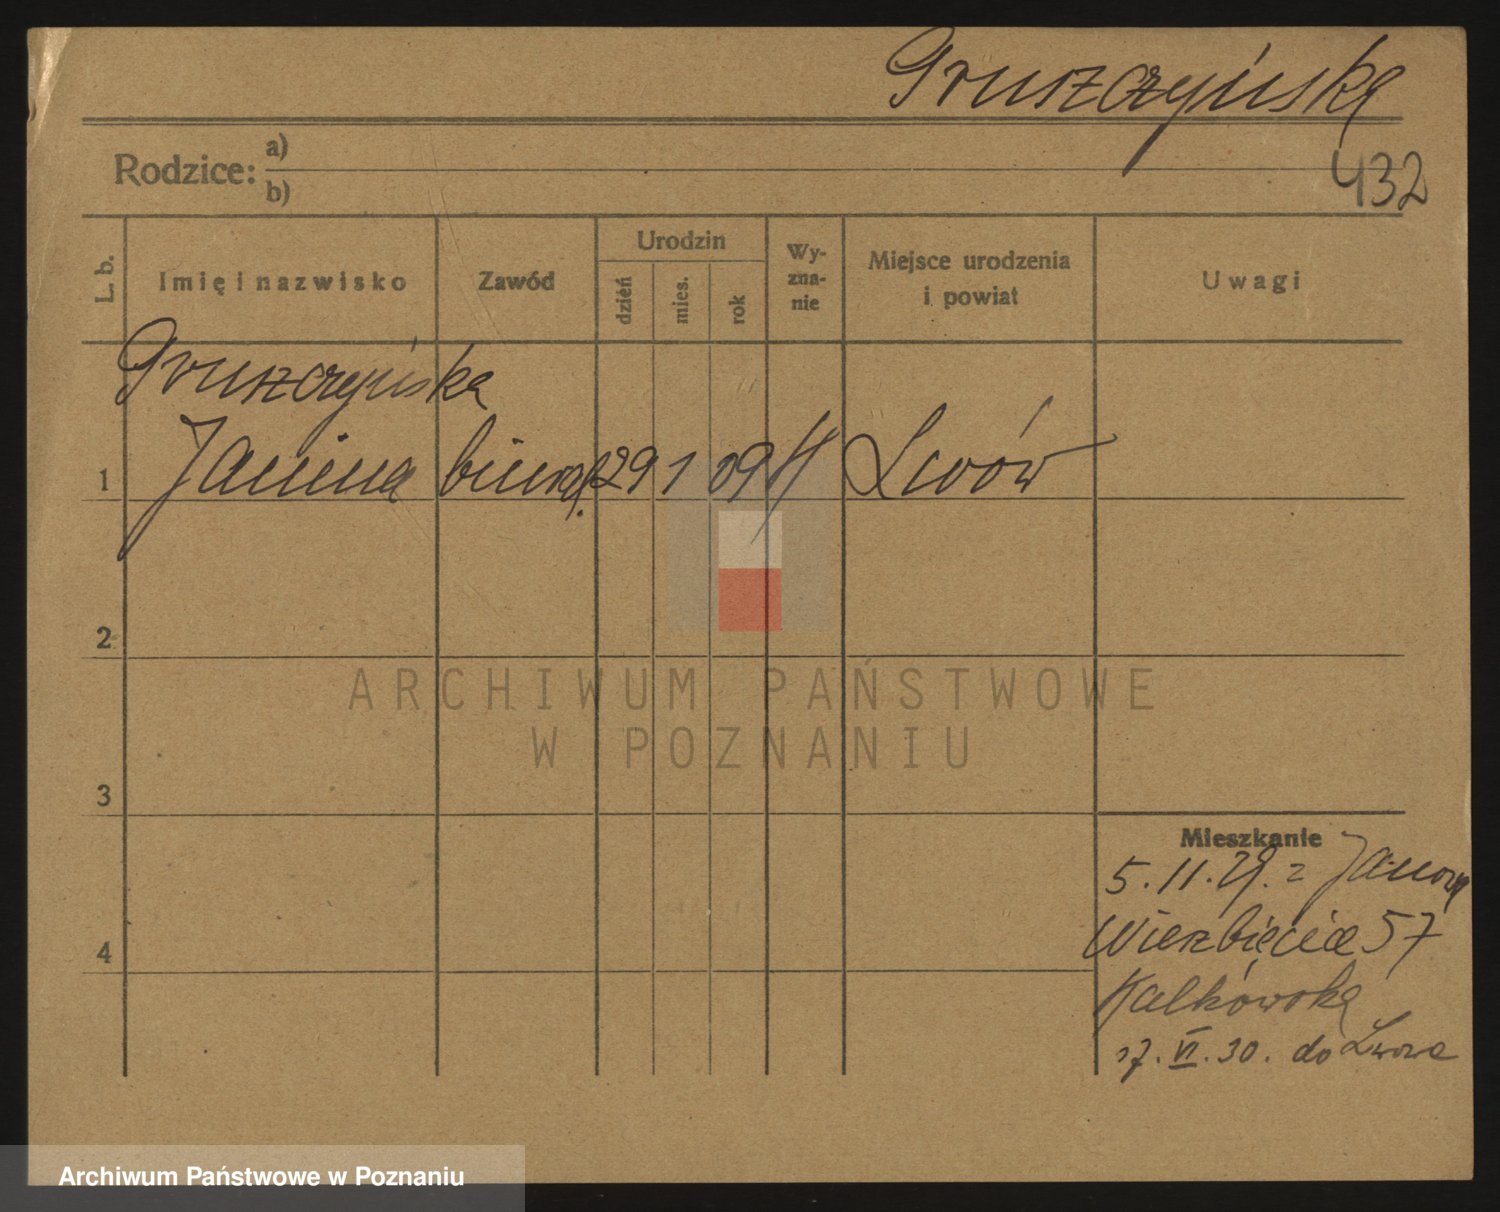 Gruszczyńska
432
Rodzice: a)
b)
L. b.
Imię i nazwisko
Zawód
Urodzin
dzień
mies.
rok
Wy-
zna-
nie
Miejsce urodzenia
i powiat
Uwagi
Gruszczyńska
1 Janina biural. 29 1 09 Lwów
2
3
4
Mieszkanie
5.11.29. z
Wierzbięcice 57
Kałkowska
17. VI. 30. do Lwowa
ARCHIWUM PAŃSTWOWE
W POZNANIU
Archiwum Państwowe w Poznaniu